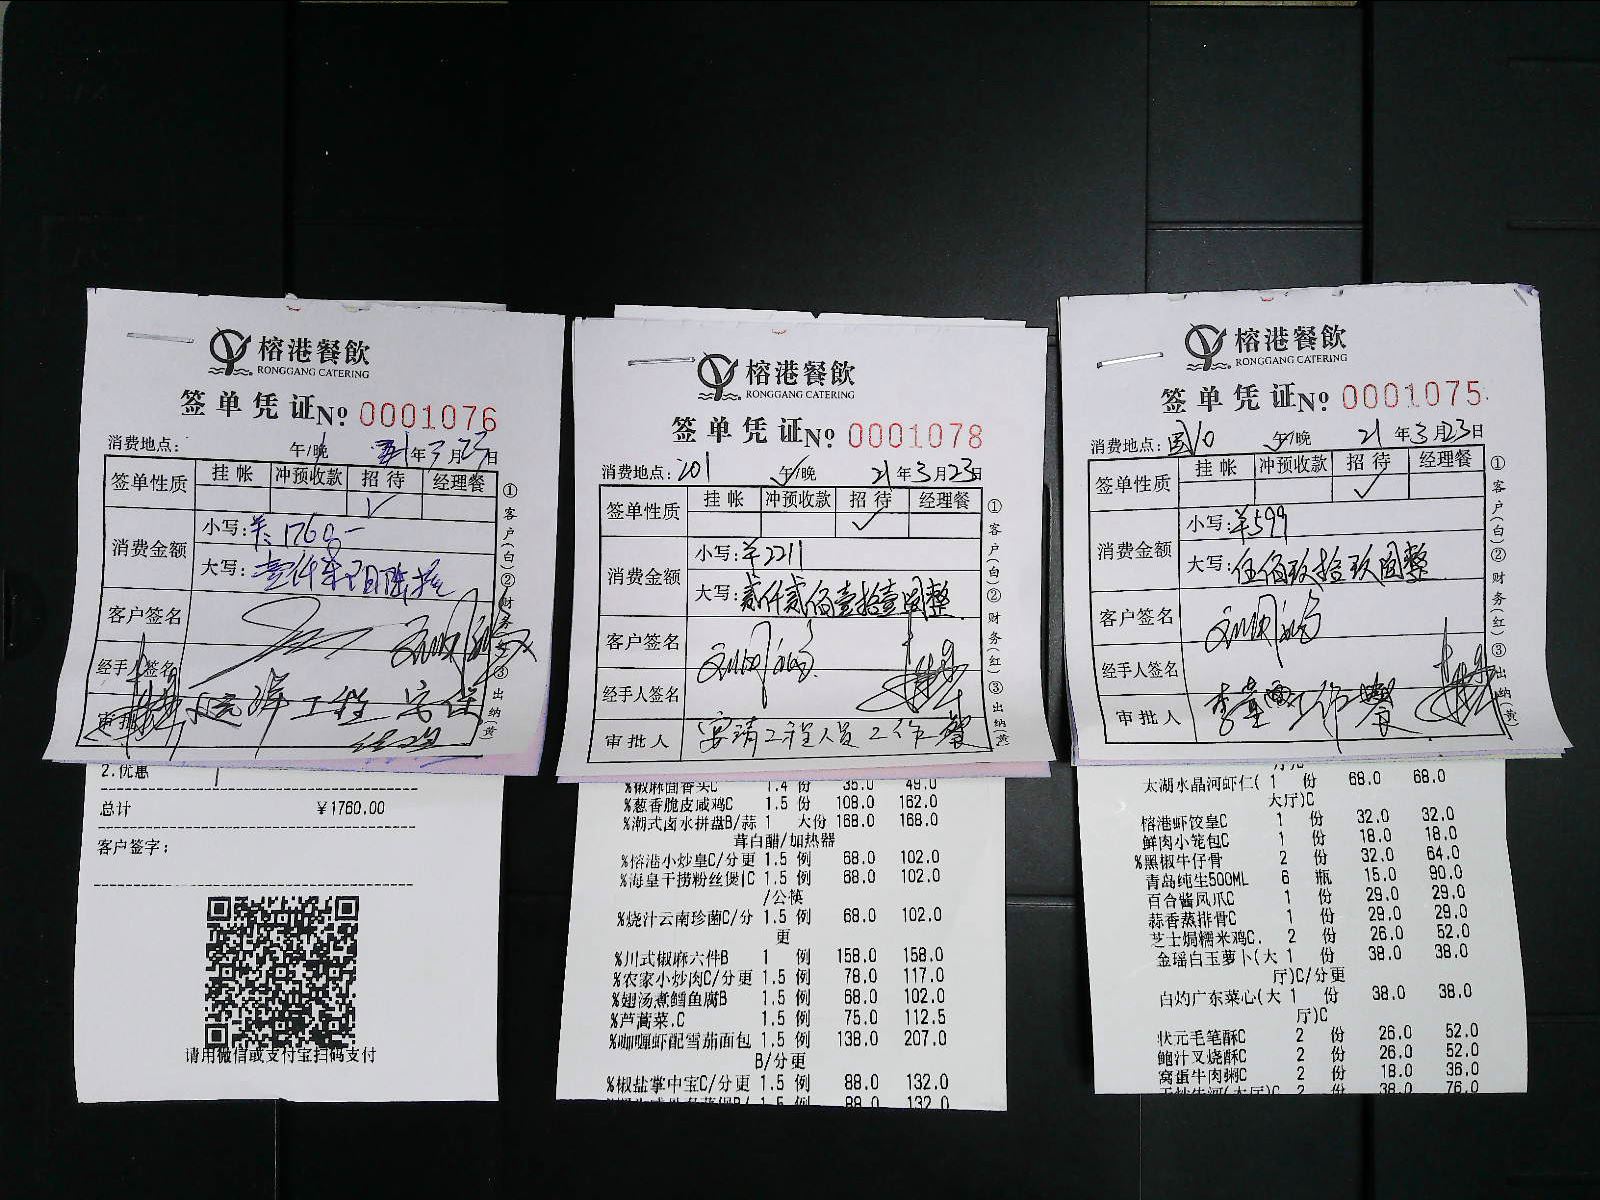 榕港餐飲
RONGGANG CATERING
签单凭证№ 0001076
消费地点: 午/晚 21年3月23日
签单性质 挂帐 冲预收款 招待 经理餐
✓
消费金额 小写:¥1760-
大写:壹仟柒佰陆拾
客户签名
经手人签名
审批人 工程
①客户(白)②财务(红)③出纳(黄)
2.优惠
总计 ¥1760.00
客户签字:
请用微信或支付宝扫码支付
榕港餐飲
RONGGANG CATERING
签单凭证№ 0001078
消费地点:201 午/晚 21年3月23日
签单性质 挂帐 冲预收款 招待 经理餐
✓
消费金额 小写:¥2211
大写:贰仟贰佰壹拾壹圆整
客户签名
经手人签名
审批人 宴请工程人员工作餐
①客户(白)②财务(红)③出纳(黄)
%椒麻茴香头C 1.4 份 35.0 49.0
%葱香脆皮咸鸡C 1.5 份 108.0 162.0
%潮式卤水拼盘B/蒜 1 大份 168.0 168.0
茸白醋/加热器
%榕港小炒皇C/分更 1.5 例 68.0 102.0
%海皇干捞粉丝煲|C 1.5 例 68.0 102.0
/公筷
%烧汁云南珍菌C/分 1.5 例 68.0 102.0
更
%川式椒麻六件B 1 例 158.0 158.0
%农家小炒肉C/分更 1.5 例 78.0 117.0
%翅汤煮鳕鱼腐B 1.5 例 68.0 102.0
%芦蒿菜.C 1.5 例 75.0 112.5
%咖喱虾配雪茄面包 1.5 例 138.0 207.0
B/分更
%椒盐掌中宝C/分更 1.5 例 88.0 132.0
1.5 例 88.0 132.0
榕港餐飲
RONGGANG CATERING
签单凭证№ 0001075
消费地点:国10 午/晚 21年3月23日
签单性质 挂帐 冲预收款 招待 经理餐
✓
消费金额 小写:¥599
大写:伍佰玖拾玖圆整
客户签名
经手人签名
审批人 李董 工作餐
①客户(白)②财务(红)③出纳(黄)
太湖水晶河虾仁( 1 份 68.0 68.0
大厅)C
榕港虾饺皇C 1 份 32.0 32.0
鲜肉小笼包C 1 份 18.0 18.0
%黑椒牛仔骨 2 份 32.0 64.0
青岛纯生500ML 6 瓶 15.0 90.0
百合酱凤爪C 1 份 29.0 29.0
蒜香蒸排骨C 1 份 29.0 29.0
芝士焗糯米鸡C. 2 份 26.0 52.0
金瑶白玉萝卜(大 1 份 38.0 38.0
厅)C/分更
白灼广东菜心(大 1 份 38.0 38.0
厅)C
状元毛笔酥C 2 份 26.0 52.0
鲍汁叉烧酥C 2 份 26.0 52.0
窝蛋牛肉粥C 2 份 18.0 36.0
干炒牛河(大厅)C 2 份 38.0 76.0